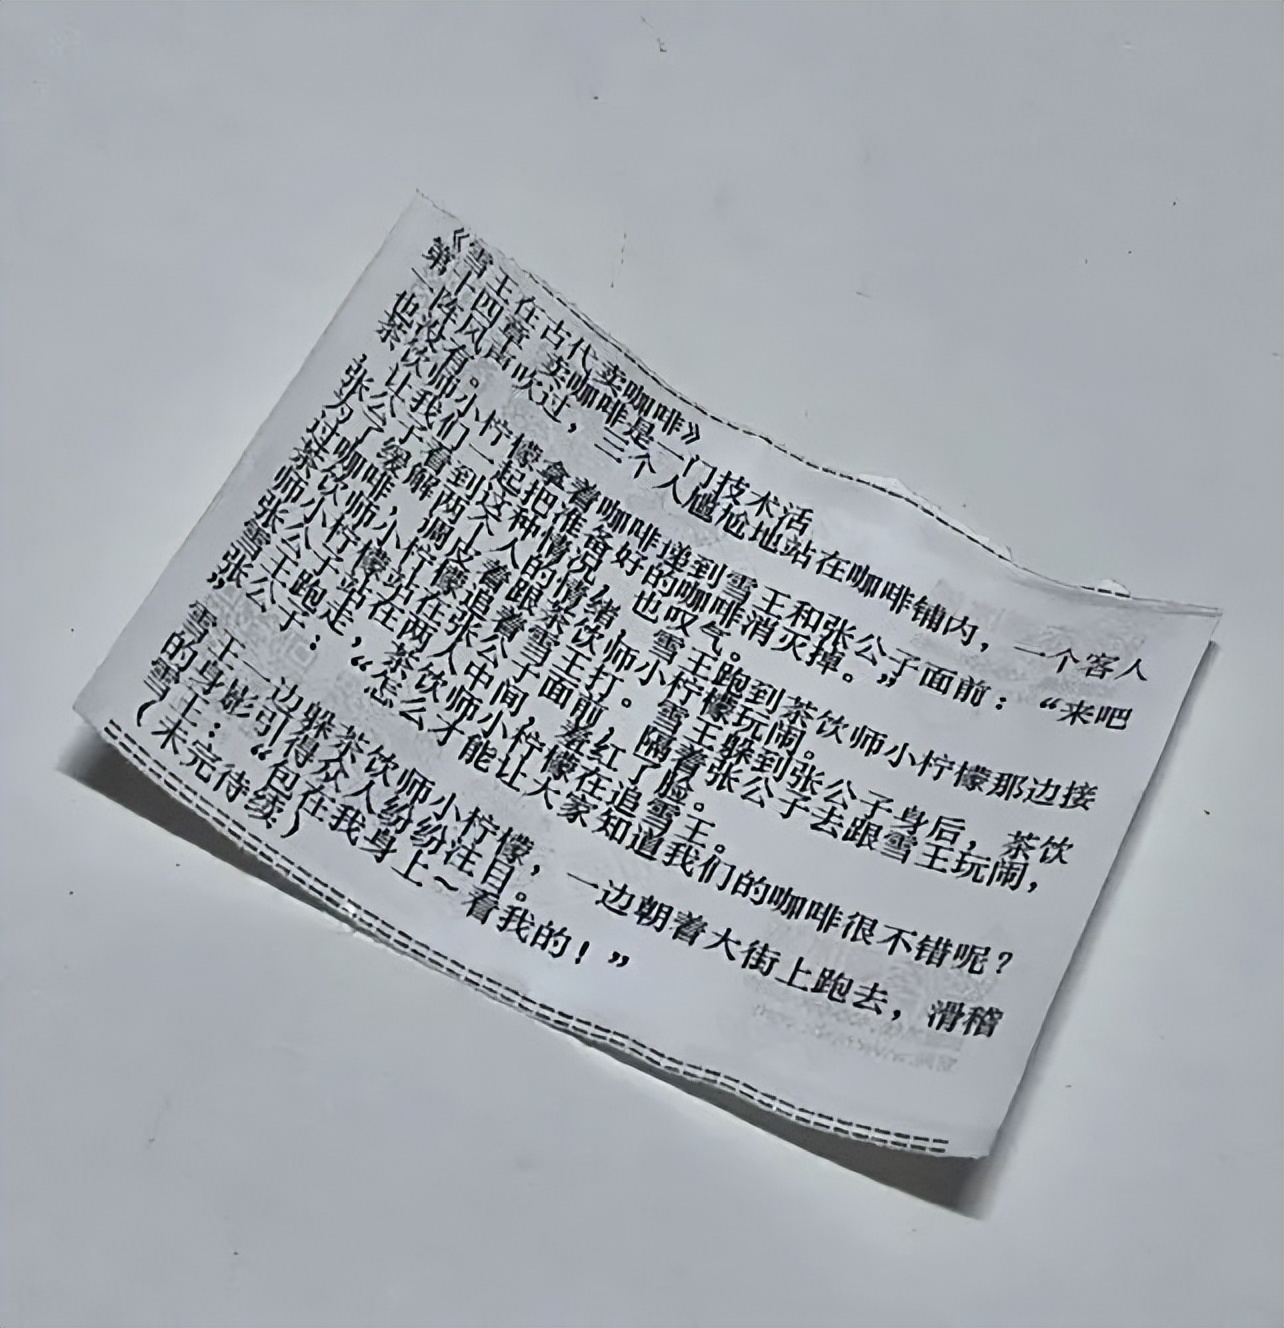 《雪王在古代卖咖啡》
第十四章 卖咖啡是一门技术活
一阵风声吹过，三个人尴尬地站在咖啡铺内，一个客人
也没有。
茶饮师小柠檬拿着咖啡递到雪王和张公子面前：“来吧
，让我们一起把准备好的咖啡消灭掉。”
张公子看到这种情况，也叹气。
为了缓解两个人的情绪，雪王跑到茶饮师小柠檬那边接
过咖啡，调皮着跟茶饮师小柠檬玩闹。
茶饮师小柠檬追着雪王打。雪王躲到张公子身后，茶饮
师小柠檬站在张公子面前，隔着张公子去跟雪王玩闹，
张公子站在两人中间，羞红了脸。
雪王跑走，茶饮师小柠檬在追雪王。
张公子：“怎么才能让大家知道我们的咖啡很不错呢？
”
雪王一边躲茶饮师小柠檬，一边朝着大街上跑去，滑稽
的身影引得众人纷纷注目。
雪王：“包在我身上~看我的！”
（未完待续）